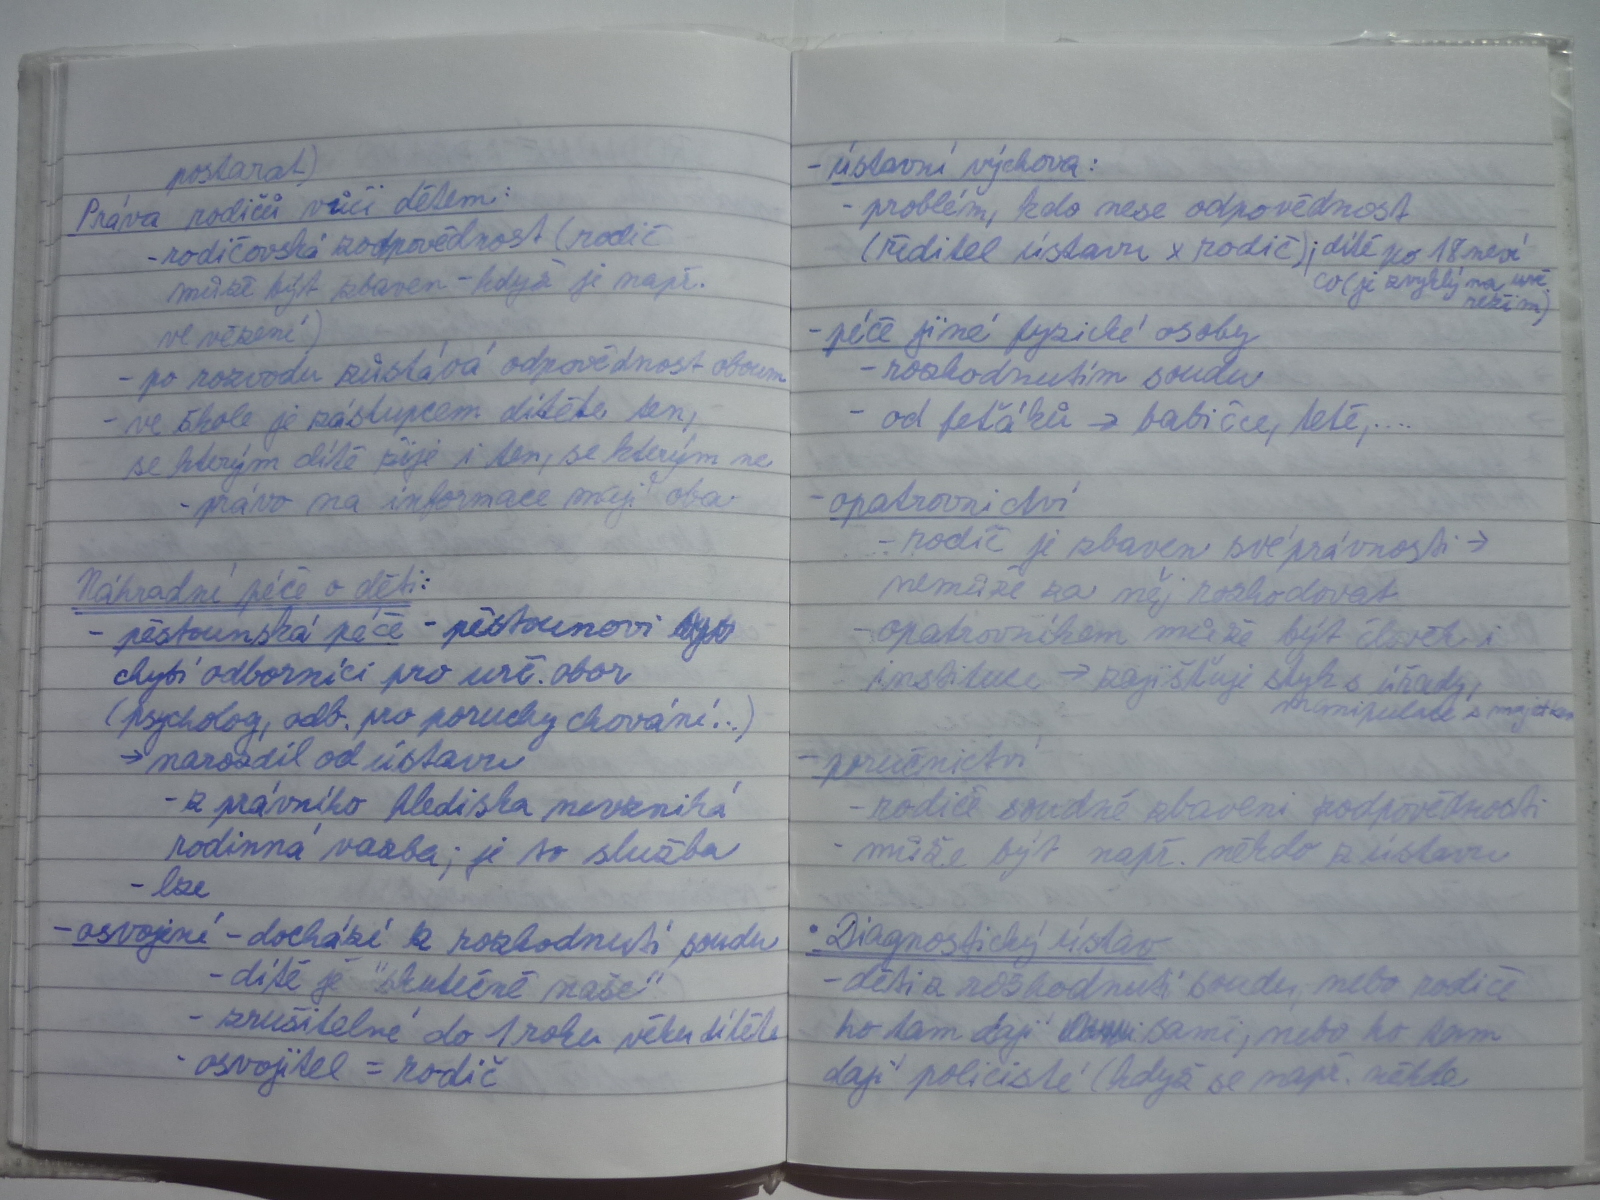 postarat)
Práva rodičů vůči dětem:
- rodičovská zodpovědnost (rodič
může být zbaven - když je např.
ve vězení)
- po rozvodu zůstává odpovědnost oboum
- ve škole je zástupcem dítěte ten,
se kterým dítě žije i ten, se kterým ne
- právo na informace mají oba
Náhradní péče o děti:
- pěstounská péče - pěstounovi
chybí odborníci pro urč. obor
(psycholog, odb. pro poruchy chování..)
→ narozdíl od ústavu
- z právního hlediska nevzniká
rodinná vazba; je to služba
- lze
- osvojení - dochází k rozhodnutí soudu
- dítě je "skutečně naše"
- zrušitelné do 1 roku věku dítěte
- osvojitel = rodič
- ústavní výchova:
- problém, kdo nese odpovědnost
(ředitel ústavu x rodič); dítě po 18 neví
co (je zvyklý na urč.
režim)
- péče jiné fyzické osoby
- rozhodnutím soudu
- od feťáků → babičce, tetě,....
- opatrovnictví
- rodič je zbaven svéprávnosti →
nemůže za něj rozhodovat
- opatrovníkem může být člověk i
instituce → zajišťuje styk s úřady,
manipulace s majetkem
- poručnictví
- rodiče soudně zbaveni zodpovědnosti
- může být např. někdo z ústavu
• Diagnostický ústav
- děti z rozhodnutí soudu, nebo rodiče
ho tam dají sami, nebo ho tam
dají policisté (když se např. někde